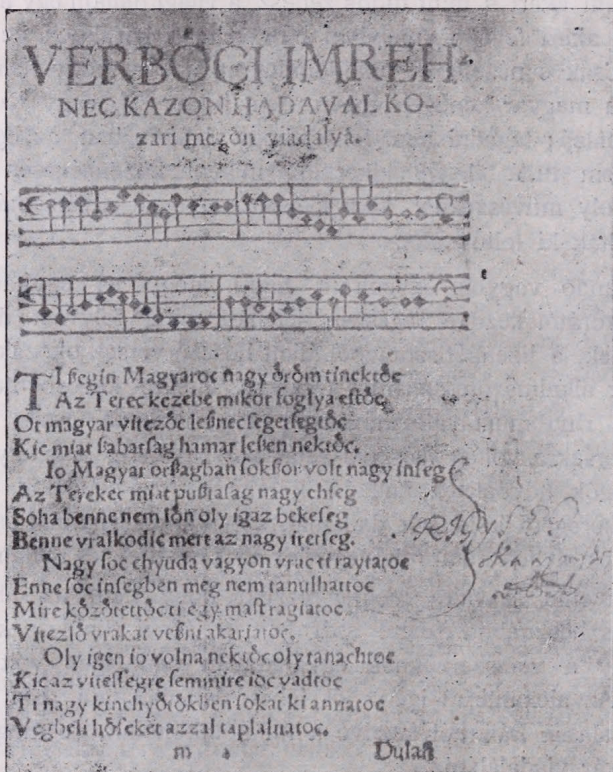 VERBÖCI IMREH-
NEC KAZON HADAVAL KO-
zari mezőn viadalya.
TI ſegin Magyaroc nagy őrőm tinektőc
Az Terec kezėbe mikor foglya eſtőc,
Ot magyar vitezőc leßnec ſegetſegtőc
Kic miat ßabatſag hamar leßen nektőc.
Io Magyar orßagban ſokßor volt nagy inſeg
Az Terekec miat pußtaſag nagy ehſeg
Soha benne nem lőn oly igaz bekeſeg
Benne vralkodic mert az nagy irerſeg.
Nagy ſoc chyuda vagyon vrac ti raytatoc
Enne ſoc inſegben meg nem tanulhattoc
Mire kőzőtettőc ti egy maſt ragiatoc
Vitezlő vrakat veßni akarjatoc.
Oly igen io volna nektőc oly tanachtoc
Kic az viteſſegre ſemmire ioc vadtoc
Ti nagy kinchyőtőkben ſokat ki annatoc
Vegbeli hőſeket azzal taplalnatoc.
m Dulaſt